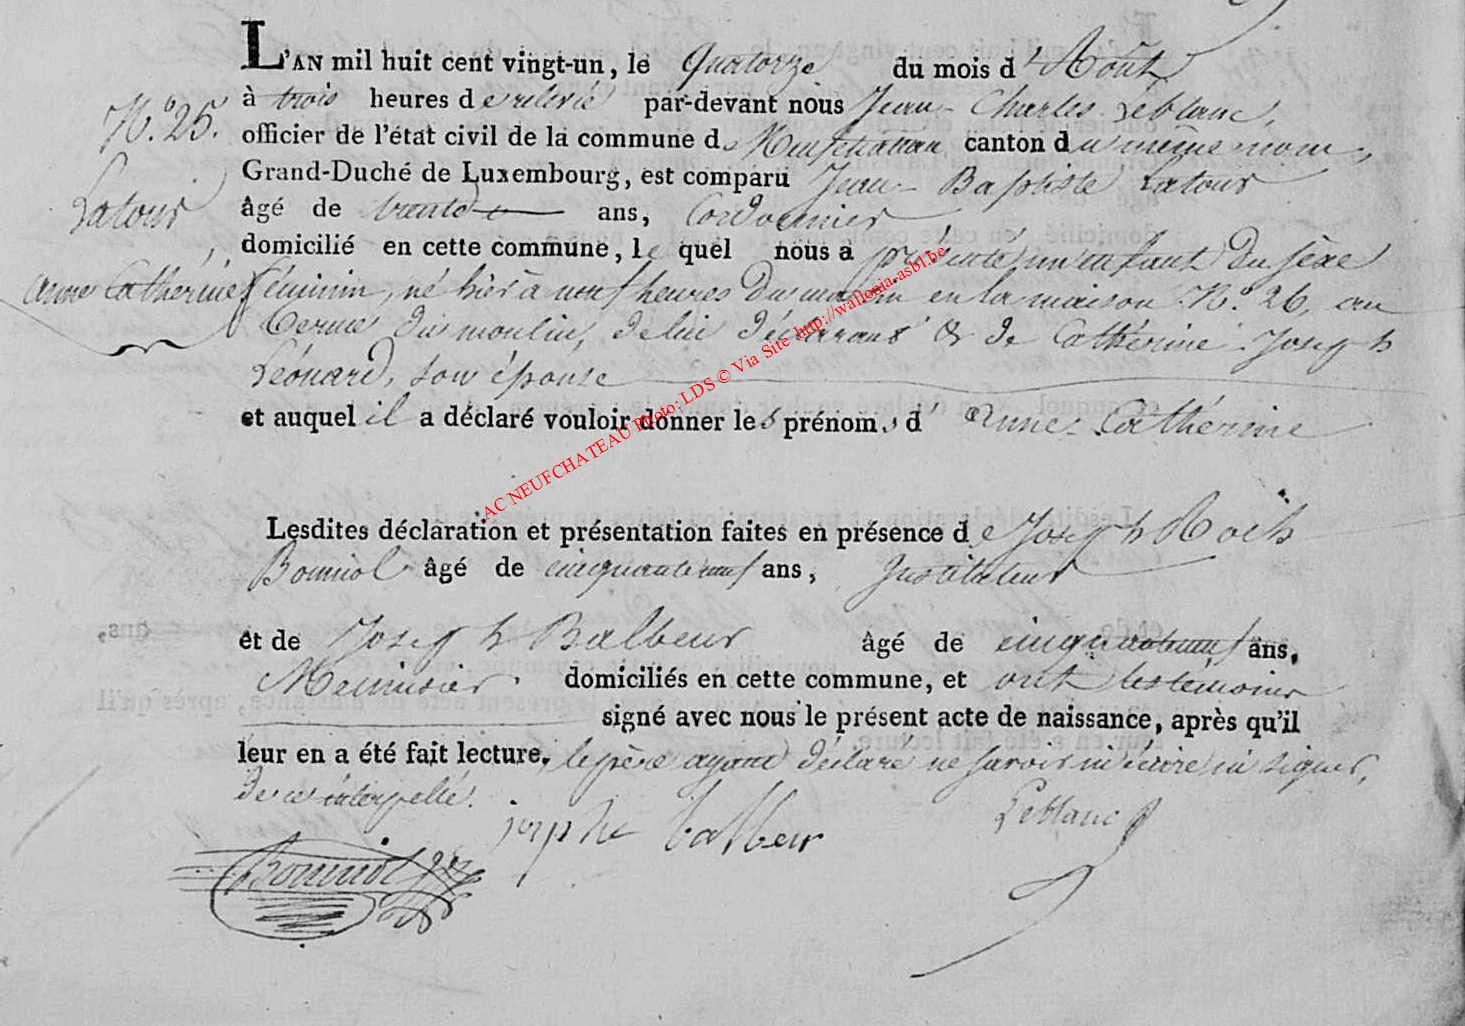 L'AN mil huit cent vingt-un, le Quatorze du mois d'Août
à trois heures de relevée par-devant nous Jean-Charles Leblanc,
N.° 25.
officier de l'état civil de la commune de Neufchateau canton du même nom,
Grand-Duché de Luxembourg, est comparu Jean-Baptiste Latour
Latour
âgé de trente ans, Cordonnier
domicilié en cette commune, lequel nous a présenté un enfant Du sèxe
anne Catherine
féminin, né hier à neuf heures Du matin en la maison N.° 26, au
Terme du moulin, de lui déclarant & de Cathérine-Joseph
Léonard, son épouse
et auquel il a déclaré vouloir donner les prénoms d'Anne-Cathérine
AC NEUFCHATEAU Photo: LDS © Via Site http://wallonia-asbl.be
Lesdites déclaration et présentation faites en présence de Joseph Roch
Bonniol âgé de cinquante neuf ans, Instituteur
et de Joseph Balbeur âgé de cinquante neuf ans,
Menuisier domiciliés en cette commune, et ont les témoins
signé avec nous le présent acte de naissance, après qu'il
leur en a été fait lecture, le père ayant déclaré ne savoir ni écrire ni signer,
de ce interpellé.
josephe balbeur
Leblanc
Bonniol